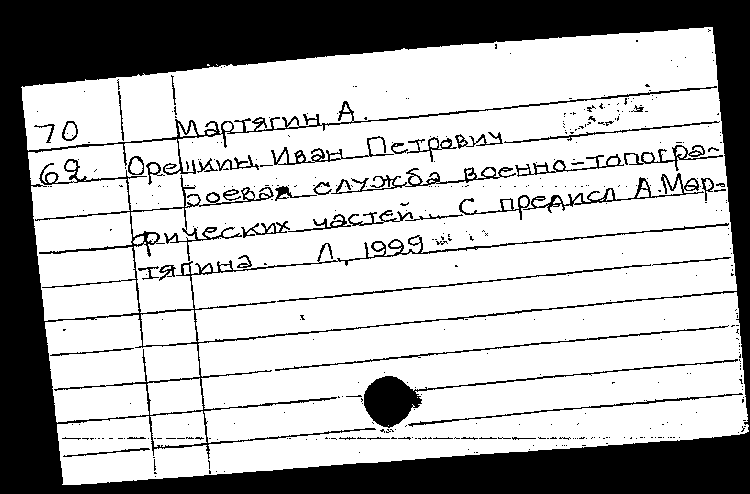 70 Мартягин, А.
62. Орешкин, Иван Петрович
Боевая служба военно-топогра-
фических частей... С предисл А.Мар-
тягина. Л., 1929